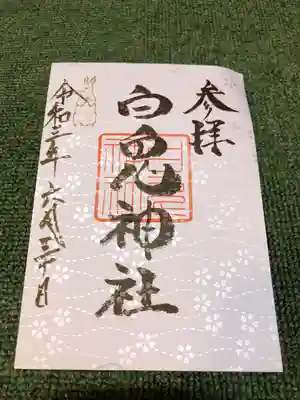 参拝
白兎神社
令和二年 六月三十日